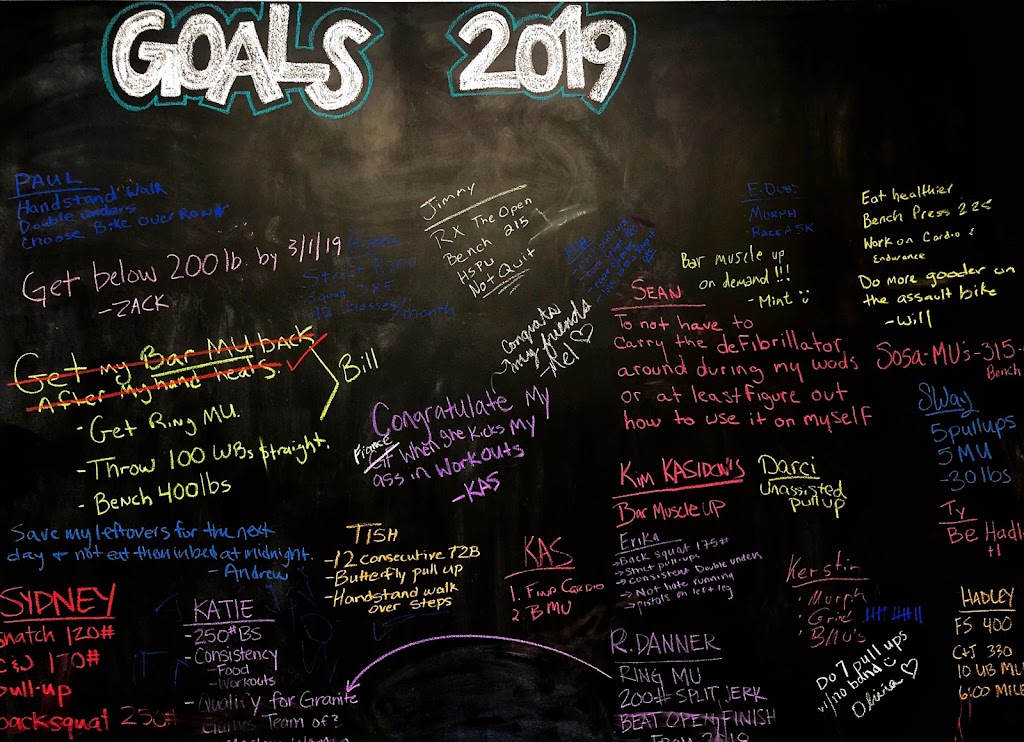 GOALS 2019
PAUL
Handstand Walk
Double unders
Choose Bike over Rower
Get below 200lb. by 3/1/19
-ZACK
12 classes/month
Jimmy
RX The Open
Bench 215
HSPU
Not Quit
E. Dubs
MURPH
RACE A 5K
Bar muscle up
on demand!!!
-Mint
Eat healthier
Bench Press 225
Work on Cardio &
Endurance
Do more gooder on
the assault bike
-Will
Get my Bar MU back
After my hand heals.
Bill
- Get Ring MU.
-Throw 100 WBs straight.
- Bench 400lbs
Congrats
my friends
-Mel
Congratulate My
Fiance
GF When she kicks My
ass in Workouts
-KAS
SEAN
To not have to
carry the defibrillator
around during my wods
or at least figure out
how to use it on myself
Sosa-MU's-315-
Bench
SWay
5 pullups
5 MU
-30 lbs
Ty
Be Hadl
+1
Kim KASIDOW'S
Bar Muscle UP
Darci
unassisted
pull up
Save my leftovers for the next
day & not eat them in bed at midnight.
- Andrew
TISH
-12 consecutive T2B
-Butterfly pull up
-Handstand walk
over steps
KAS
1. Find Cardio
2 BMU
Erika
→Back squat 175#
→Strict pull-ups
→consistent Double unders
→Not hate running
→pistols on left leg
Kerstin
· Murph
· Grid
· BMU's
HADLEY
FS 400
C+J 330
10 UB MU
6:00 MILE
SYDNEY
snatch 120#
C&J 170#
pull-up
backsquat 250#
KATIE
-250# BS
- Consistency
- Food
- Workouts
- Qualify for Granite
Games Team of?
R. DANNER
RING MU
200# SPLIT JERK
BEAT OPEN FINISH
Do 7 pull ups
w/no band
Olivia